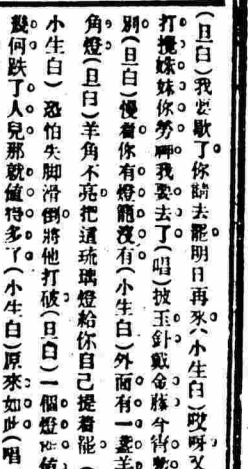 (旦白)我要歇了你請去罷明日再來(小生白)哎呀又
打攪妹妹你勞神我要去了(唱)披玉針戴金籐今宵暫
別(旦白)慢着你有燈籠沒有(小生白)外面有一盞羊
角燈(旦白)羊角不亮把這琉璃燈給你自己提着罷(
小生白)恐怕失脚滑倒將他打破(旦白)一個燈能值
幾何跌了人兒那就值得多了(小生白)原來如此(唱